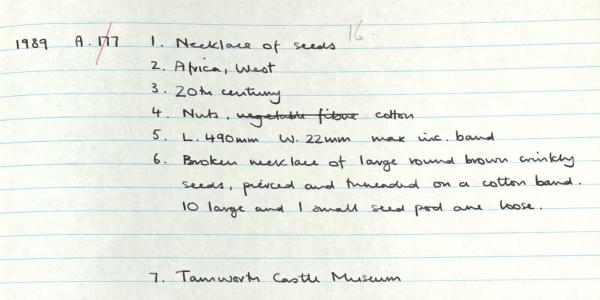 16
1989 A.177 1. Necklace of seeds
2. Africa, West
3. 20th century
4. Nuts, vegetable fibre cotton
5. L. 490mm W. 22mm max inc. band
6. Broken necklace of large round brown crinkly
seeds, pierced and threaded on a cotton band.
10 large and 1 small seed pod are loose.
7. Tamworth Castle Museum